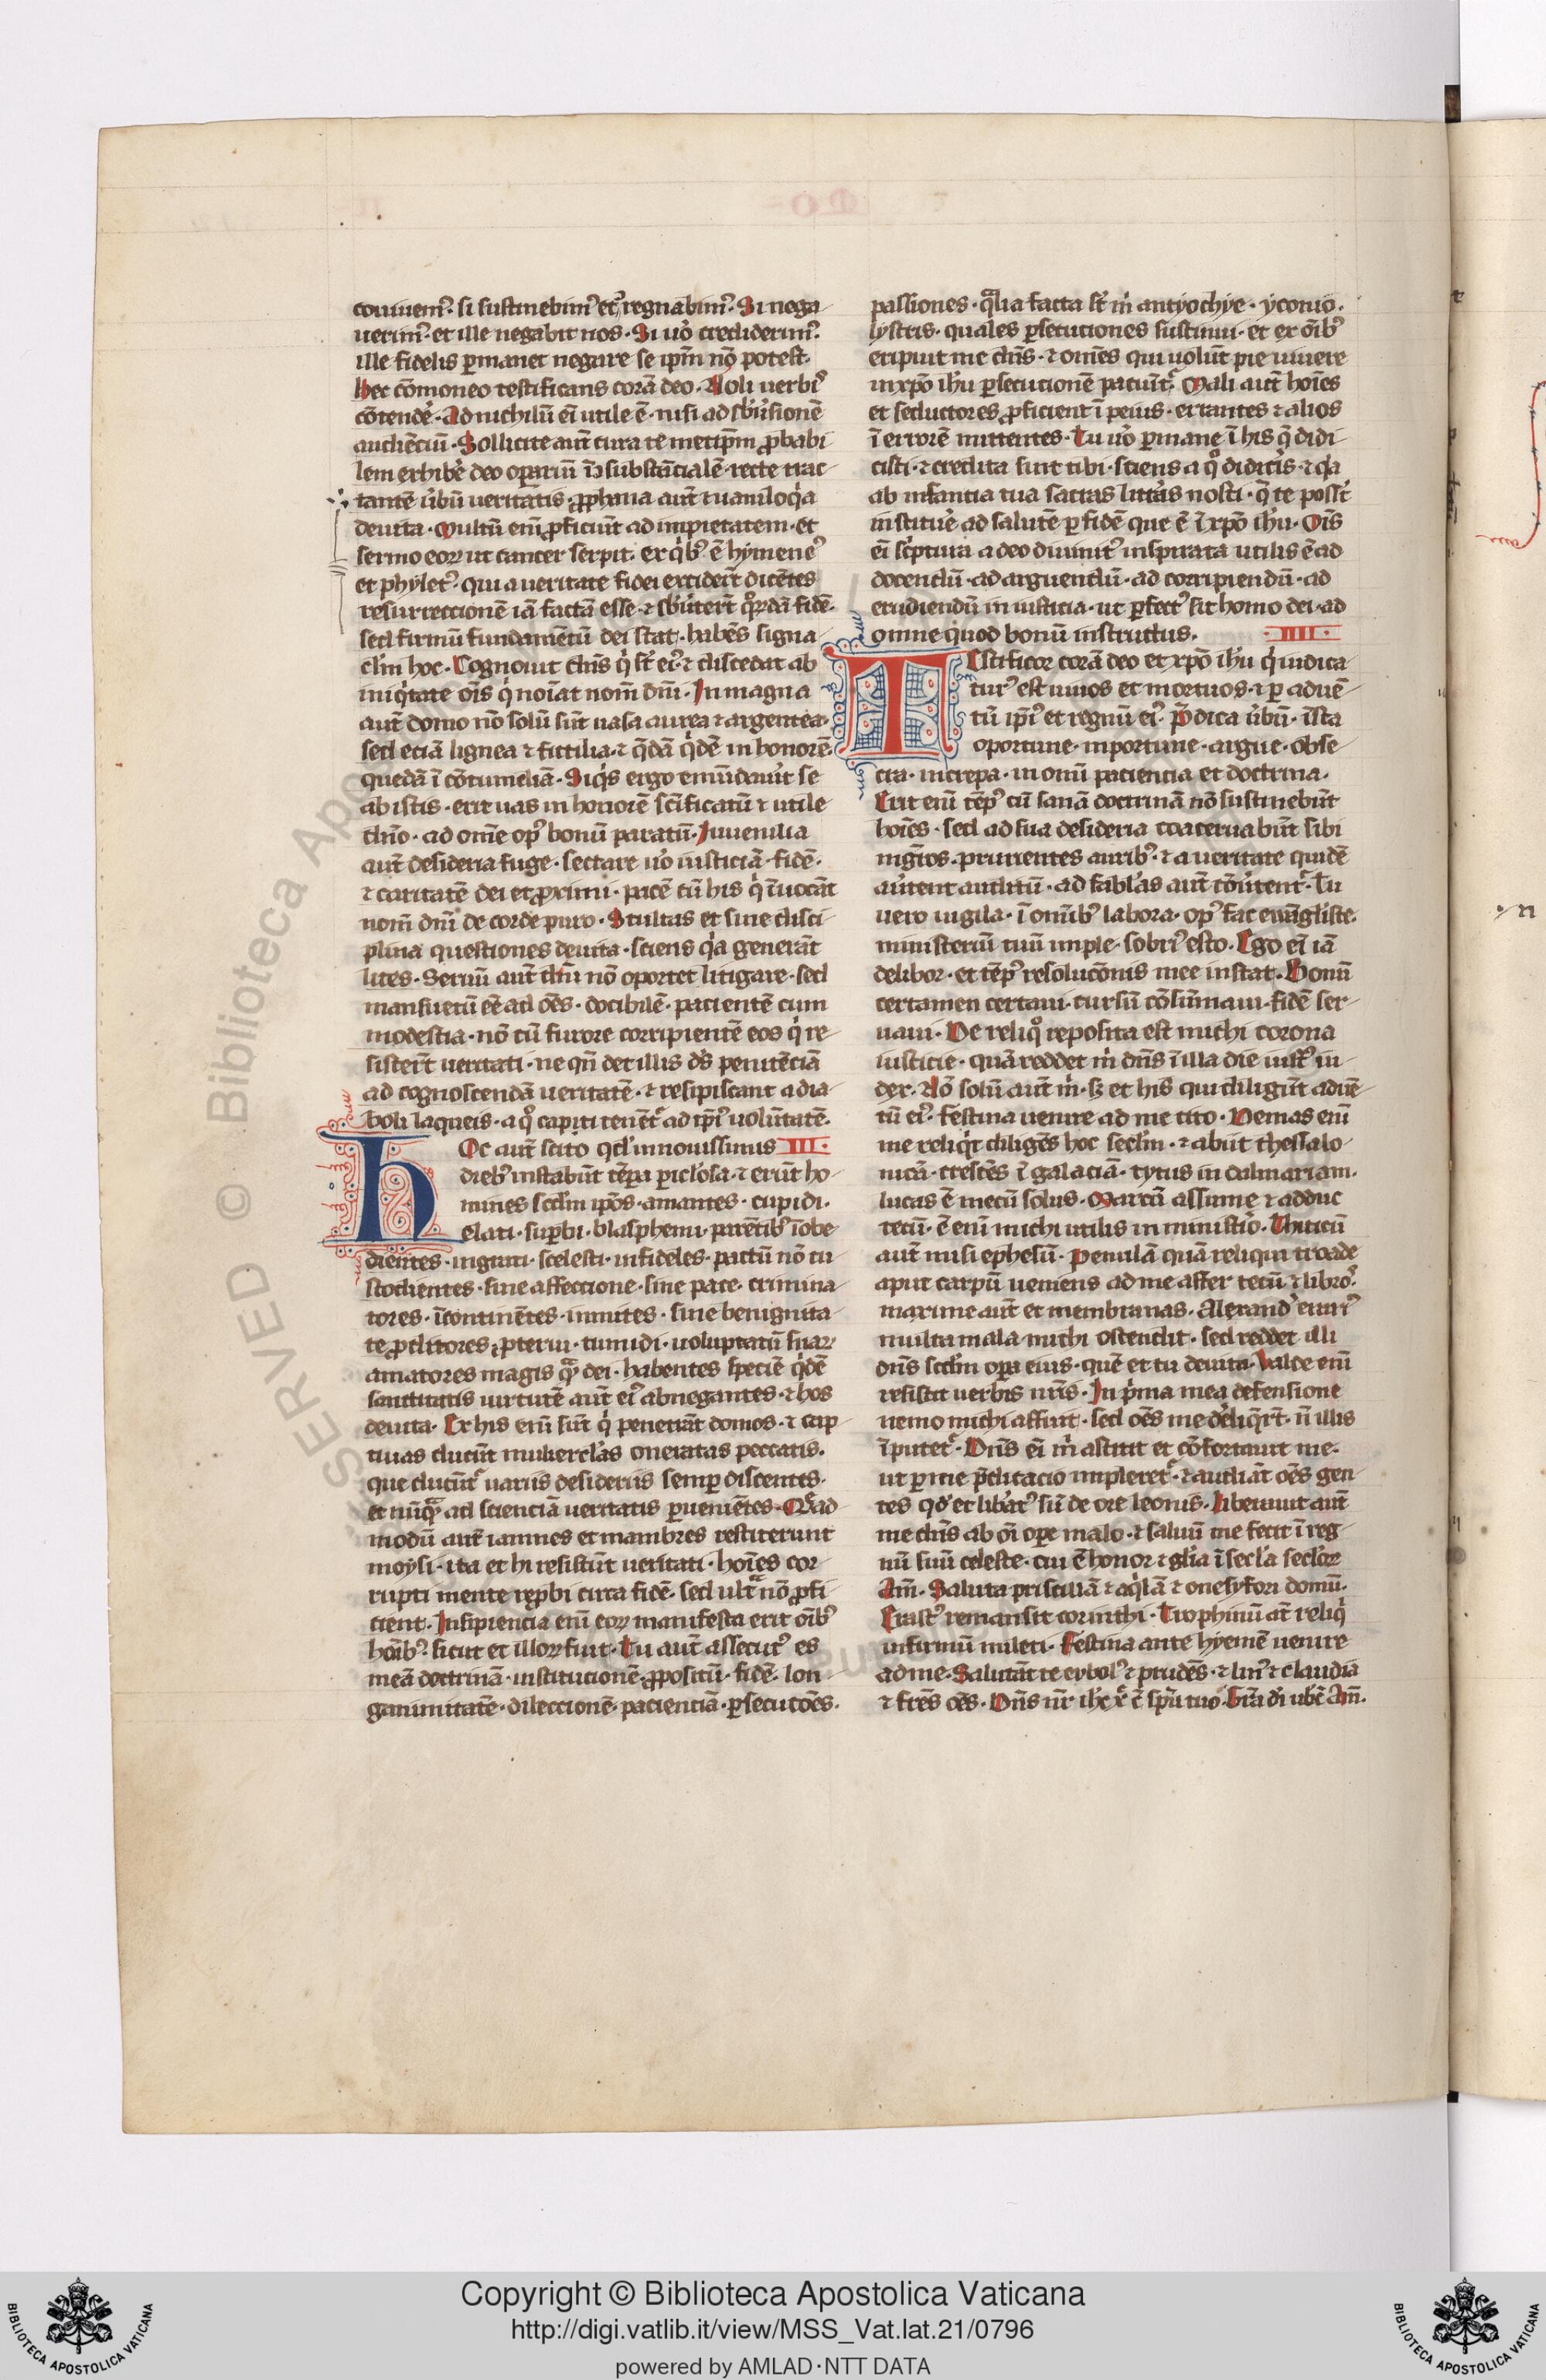 conuiuem᷒· si sustinebim᷒ et ꝯregnabim᷒· Si nega
uerim᷒· et ille negabit nos· Si uo᷒ crediderim᷒·
ille fidelis ꝑmanet negare se ip̄m nō potest·
Hec cōmoneo testificans corā deo· Noli uerbis
cōtende᷒· Ad nichilū ei᷒ utile ē· nisi ad sb᷒uersionē
audiēciū· Sollicite aut̄ cura te metip̄m ꝓbabi
lem exhibe᷒ deo oꝑariū recte trac
tantē u᷒bū ueritatis· ꝓphana aut̄ ⁊ uaniloq̇a
deuita· Multū eni᷒ ꝓficiūt ad impietatem· et
sermo eoꝝ ut cancer serpit· ex q̇b᷒ ē hymene᷒
et phylet᷒· qui a ueritate fidei exciderūt dicētes
resurrectionē iā factā esse· ⁊ sb᷒uerter̄t q᷒ꝛdā fidē·
sed firmū fundamētū dei stat· habēs signa
cl᷒m hoc· Cognouit dn̄s q̇ sūt ei᷒· ⁊ discedat ab
iniq̇tate oīs q̇ noīat nom̄ dn̄i· In magna
aut̄ domo nō solū sūt uasa aurea ⁊ argentea·
sed eciā lignea ⁊ fictilia· ⁊ q̄dā q̇dē in honorē·
quedā ī cōtumeliā· Siq̇s ergo emūdau᷒it se
ab istis· erit uas in honorē sc̄ificatū ⁊ utile
dn̄o· ad om̄e op᷒ bonū paratū· Iuuenilia
aut̄ desideria fuge· sectare uo᷒ iusticiā· fidē·
⁊ caritatē dei et ꝓximi· pacē cū his q̇ īuocāt
nom̄ dn̄i de corde puro· Stultas et sine disci
plina questiones deuita· sciens q̇a generāt
lites· Seruū aut̄ dn̄i nō oportet litigare· sed
mansuetū eē ad oēs· docibilē· pacientē cum
modestia· nō cū furore corripientē eos q̇ re
sister̄t ueritati· ne qn̄ det illis ds᷒ penitēciā
ad cognoscendā ueritatē· ⁊ resipiscant a dia
boli laqueis· a q᷒ capti tenēt᷒ ad ip̄i᷒ uolūtatē·
Hoc aut̄ scito qd᷒ in nouissimis III·
dieb᷒ instabūt tēꝑa ꝑiclosa· ⁊ erūt ho
mines sed᷒m ip̄os amantes· cupidi·
elati· suꝑbi· blasphemi· parētib᷒ īobe
dientes· ingrati· scelesti· infideles· pactū nō cu
stodientes· sine affectione· sine pace· crimina
tores· īcontinētes· inmites· sine benignita
te ꝓditores· ꝓterui· tumidi· uoluptatū suaꝝ
amatores magis q̄ᵃ dei· habentes speciē q̇dē
sanctitatis uirtutē aut̄ ei᷒ abnegantes· ⁊ hos
deuita· Ex his eni᷒ sūt q̇ penetrāt domos· ⁊ cap
tiuas ducūt muliercl᷒as oneratas peccatis·
que ducūt᷒ uariis desideriis semꝑ discentes·
et nūq̄ᵃ ad scienciā ueritatis ꝑueniētes· Q᷒mad
modū aut̄ iamnes et mambres restiterunt
moysi· ita et hi resistūt ueritati· hoīes cor
rupti mente reꝓbi circa fidē· sed ult̄ᵃ nō ꝓfi
cient· Insipiencia eni᷒ eoꝝ manifesta erit oīb᷒
hoīb᷒· sicut et illoꝝ fuit· Tu aut̄ assecut᷒ es
meā doctrinā· institucionē· ꝓpositū· fidē· lon
ganimitatē· dileccionē· pacienciā· ꝑsecucōes·
passiones· q̄ᵃlia facta sūt m᷒ antyochye· yconio·
lystris· quales ꝑsecuciones sustinui· et ex oīb᷒
eripuit me dn̄s· ⁊ om̄es qui uolūt pie uiuere
in xp̄o ih᷒u ꝑsecutionē paciūt᷒· Mali aut̄ hoīes
et seductores ꝓficient ī peius· errantes ⁊ alios
ī errorē mittentes· Tu uo᷒ ꝑmane ī his q̄ didi
cisti· ⁊ credita sunt tibi· sciens a q᷒ didicis᷒· ⁊ q̇a
ab infantia tua sacras litt᷒as nosti· q̄ te possūt
institue᷒ ad salutē ꝑ fidē que ē ī xp̄o ih᷒u· Oīs
ei᷒ sc᷒ptura a deo diuinit᷒ inspirata utilis ē ad
docendū· ad arguendū· ad corripiendū· ad
erudiendū in iusticia· ut ꝑfect᷒ sit homo dei· ad
omne quod bonū instructus· ·IIII·
Testificor corā deo et xp̄o ih᷒u q̇ iudica
tur᷒ est uiuos et mortuos· ⁊ ꝑ aduē
tū ip̄i᷒ et regnū ei᷒· p̄dica u᷒bū· īsta
oportune· inportune· argue· obse
cra· increpa· in omī paciencia et doctrina·
Erit eni᷒ tēp᷒ cū sanā doctrinā nō sustinebūt
hoīes· sed ad sua desideria coaceruabūt sibi
mgr̄os· prurientes aurib᷒· ⁊ a ueritate quidē
au᷒tent auditū· ad fabl᷒as aut̄ cōu᷒tent᷒· Tu
uero uigila· ī omīb᷒ labora· op᷒ fac ewāgliste·
ministeriū tuū imple· sobri᷒ esto· Ego ei᷒ iā
delibor· et tēp᷒ resolucōnis mee instat· Bonū
certamen certaui· cursū cōsūmaui· fidē ser
uaui· De reliq᷒ reposita est michi corona
iusticie· quā reddet m᷒ dn̄s ī illa die iust᷒ iu
dex· Nō solū aut̄ m᷒· sꝫ et his qui diligūt aduē
tū ei᷒· Festina uenire ad me cito· Demas eni᷒
me reliq̇t diligēs hoc secl᷒m· ⁊ abiit thessalo
nicā· crescēs ī galaciā· tytus in dalmaciam·
lucas ē mecū solus· Marcū assume ⁊ adduc
tecū· ē eni᷒ michi utilis in ministio᷒· Thiticū
aut̄ misi ephesū· Penulā quā reliqui troade
aput carpū ueniens ad me affer tecū ⁊ libro᷒s·
maxime aut̄ et membranas· Alexand᷒ erari᷒
multa mala michi ostendit· sed reddet illi
dn̄s scd᷒m oꝑa eius· quē et tu deuita· Valde eni᷒
resistit uerbis nr̄is· In p᷒ma mea defensione
nemo michi affuit· sed oēs me dereliq̄rt· n̄ illis
īputet᷒· Dn̄s ei᷒ m᷒ astitit et cōfortauit me·
ut ꝑ me p̄dicacio impleret᷒· ⁊ audiāt oēs gen
tes qd᷒ et libat᷒ sū de ore leonis· Liberauit aut̄
me dn̄s ab oī oꝑe malo· ⁊ saluū me fecit ī reg
nū suū celeste· cui ē honor ⁊ gl᷒ia ī secl᷒a secl᷒oꝝ
Am̄· Saluta priscillā ⁊ aq̇lā ⁊ onesyfori domū·
Erast᷒ remansit corinthi· Trophimū at̄ reliq̇
infirmū mileti· Festina ante hyemē uenire
ad me· Salutāt te eubol᷒ ⁊ prudēs· ⁊ lin᷒ ⁊ claudia
⁊ fr̄es oēs· Dn̄s nr̄ ih᷒c x᷒ ē sp̄u tuo· Gr̄a di᷒ ubc̄ Am̄·
Copyright © Biblioteca Apostolica Vaticana
http://digi.vatlib.it/view/MSS_Vat.lat.21/0796
powered by AMLAD·NTT DATA
BIBLIOTECA APOSTOLICA VATICANA
BIBLIOTECA APOSTOLICA VATICANA